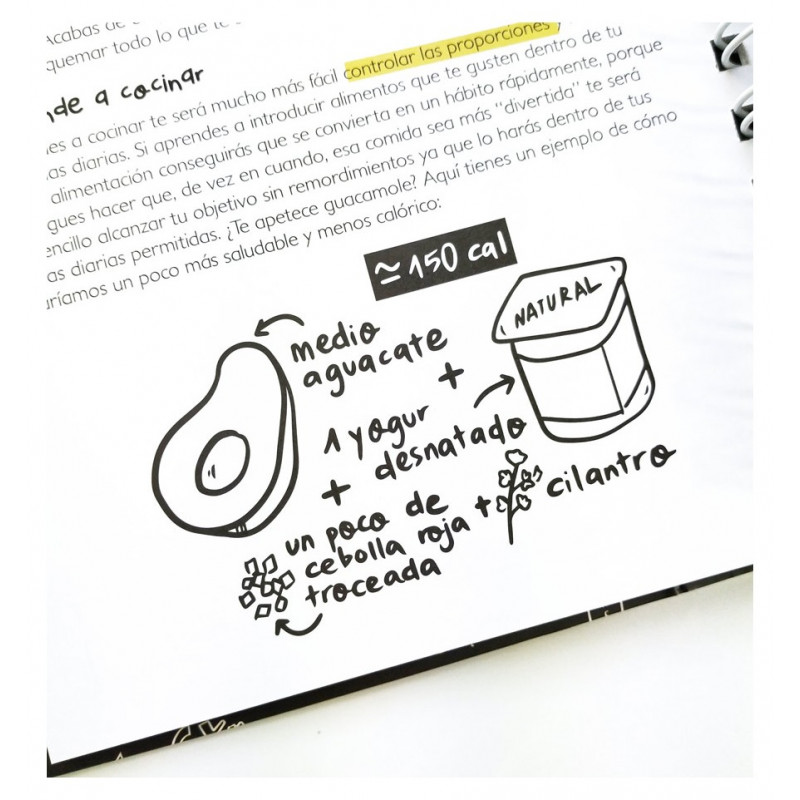 Acabas de
quemar todo lo que te
nde a cocinar
es a cocinar te será mucho más fácil controlar las proporciones y
as diarias. Si aprendes a introducir alimentos que te gusten dentro de tu
alimentación conseguirás que se convierta en un hábito rápidamente, porque
gues hacer que, de vez en cuando, esa comida sea más "divertida" te será
encillo alcanzar tu objetivo sin remordimientos ya que lo harás dentro de tus
as diarias permitidas. ¿Te apetece guacamole? Aquí tienes un ejemplo de cómo
ríamos un poco más saludable y menos calórico:
≃ 150 cal
NATURAL
medio
aguacate
+
1 yogur
desnatado
+
un poco de
cebolla roja + cilantro
troceada